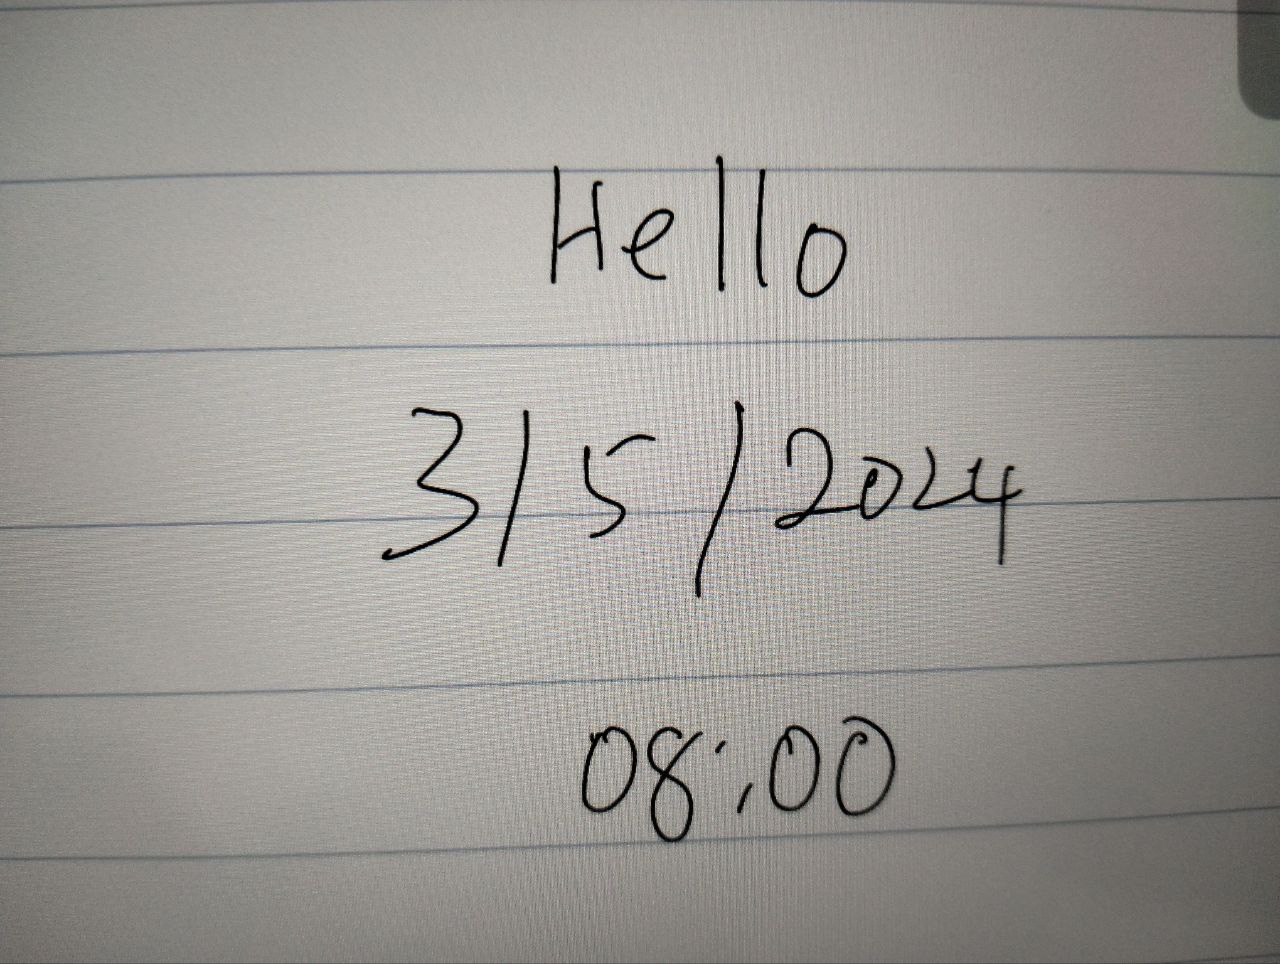 Hello
3/5/2024
08:00